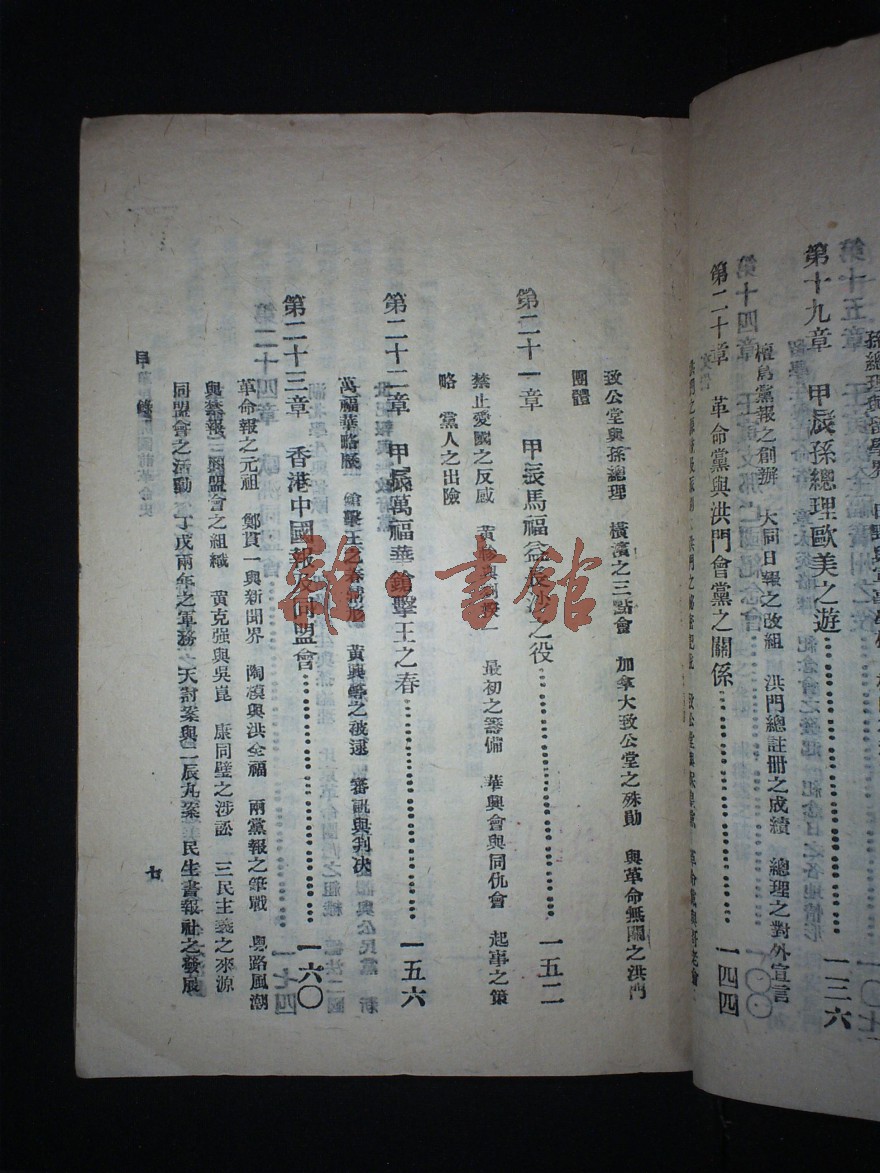 第十九章　甲辰孫總理歐美之遊⋯⋯一三六
檀島黨報之創辦　大同日報之改組　洪門總註冊之成績　總理之對外宣言
第二十章　革命黨與洪門會黨之關係⋯⋯一四四
致公堂與孫總理　橫濱之三點會　加拿大致公堂之殊勛　與革命無關之洪門
團體
第二十一章　甲辰馬福益長沙之役⋯⋯一五二
禁止愛國之反感　黃軫與劉揆一　最初之籌備　華興會與同仇會　起事之策
略　黨人之出險
第二十二章　甲辰萬福華鎗擊王之春⋯⋯一五六
萬福華略歷　鎗擊王之春情形　黃興等之被逮　審訊與判决
第二十三章　香港中國報及同盟會⋯⋯一六〇
革命報之元祖　鄭貫一與新聞界　陶模與洪全福　兩黨報之筆戰　粵路風潮
與禁報　同盟會之組織　黃克強與吳崑　康同璧之涉訟　三民主義之來源
同盟會之活動　丁戊兩年之軍務　天討案與二辰丸案　民生書報社之發展
七
雜·書舘